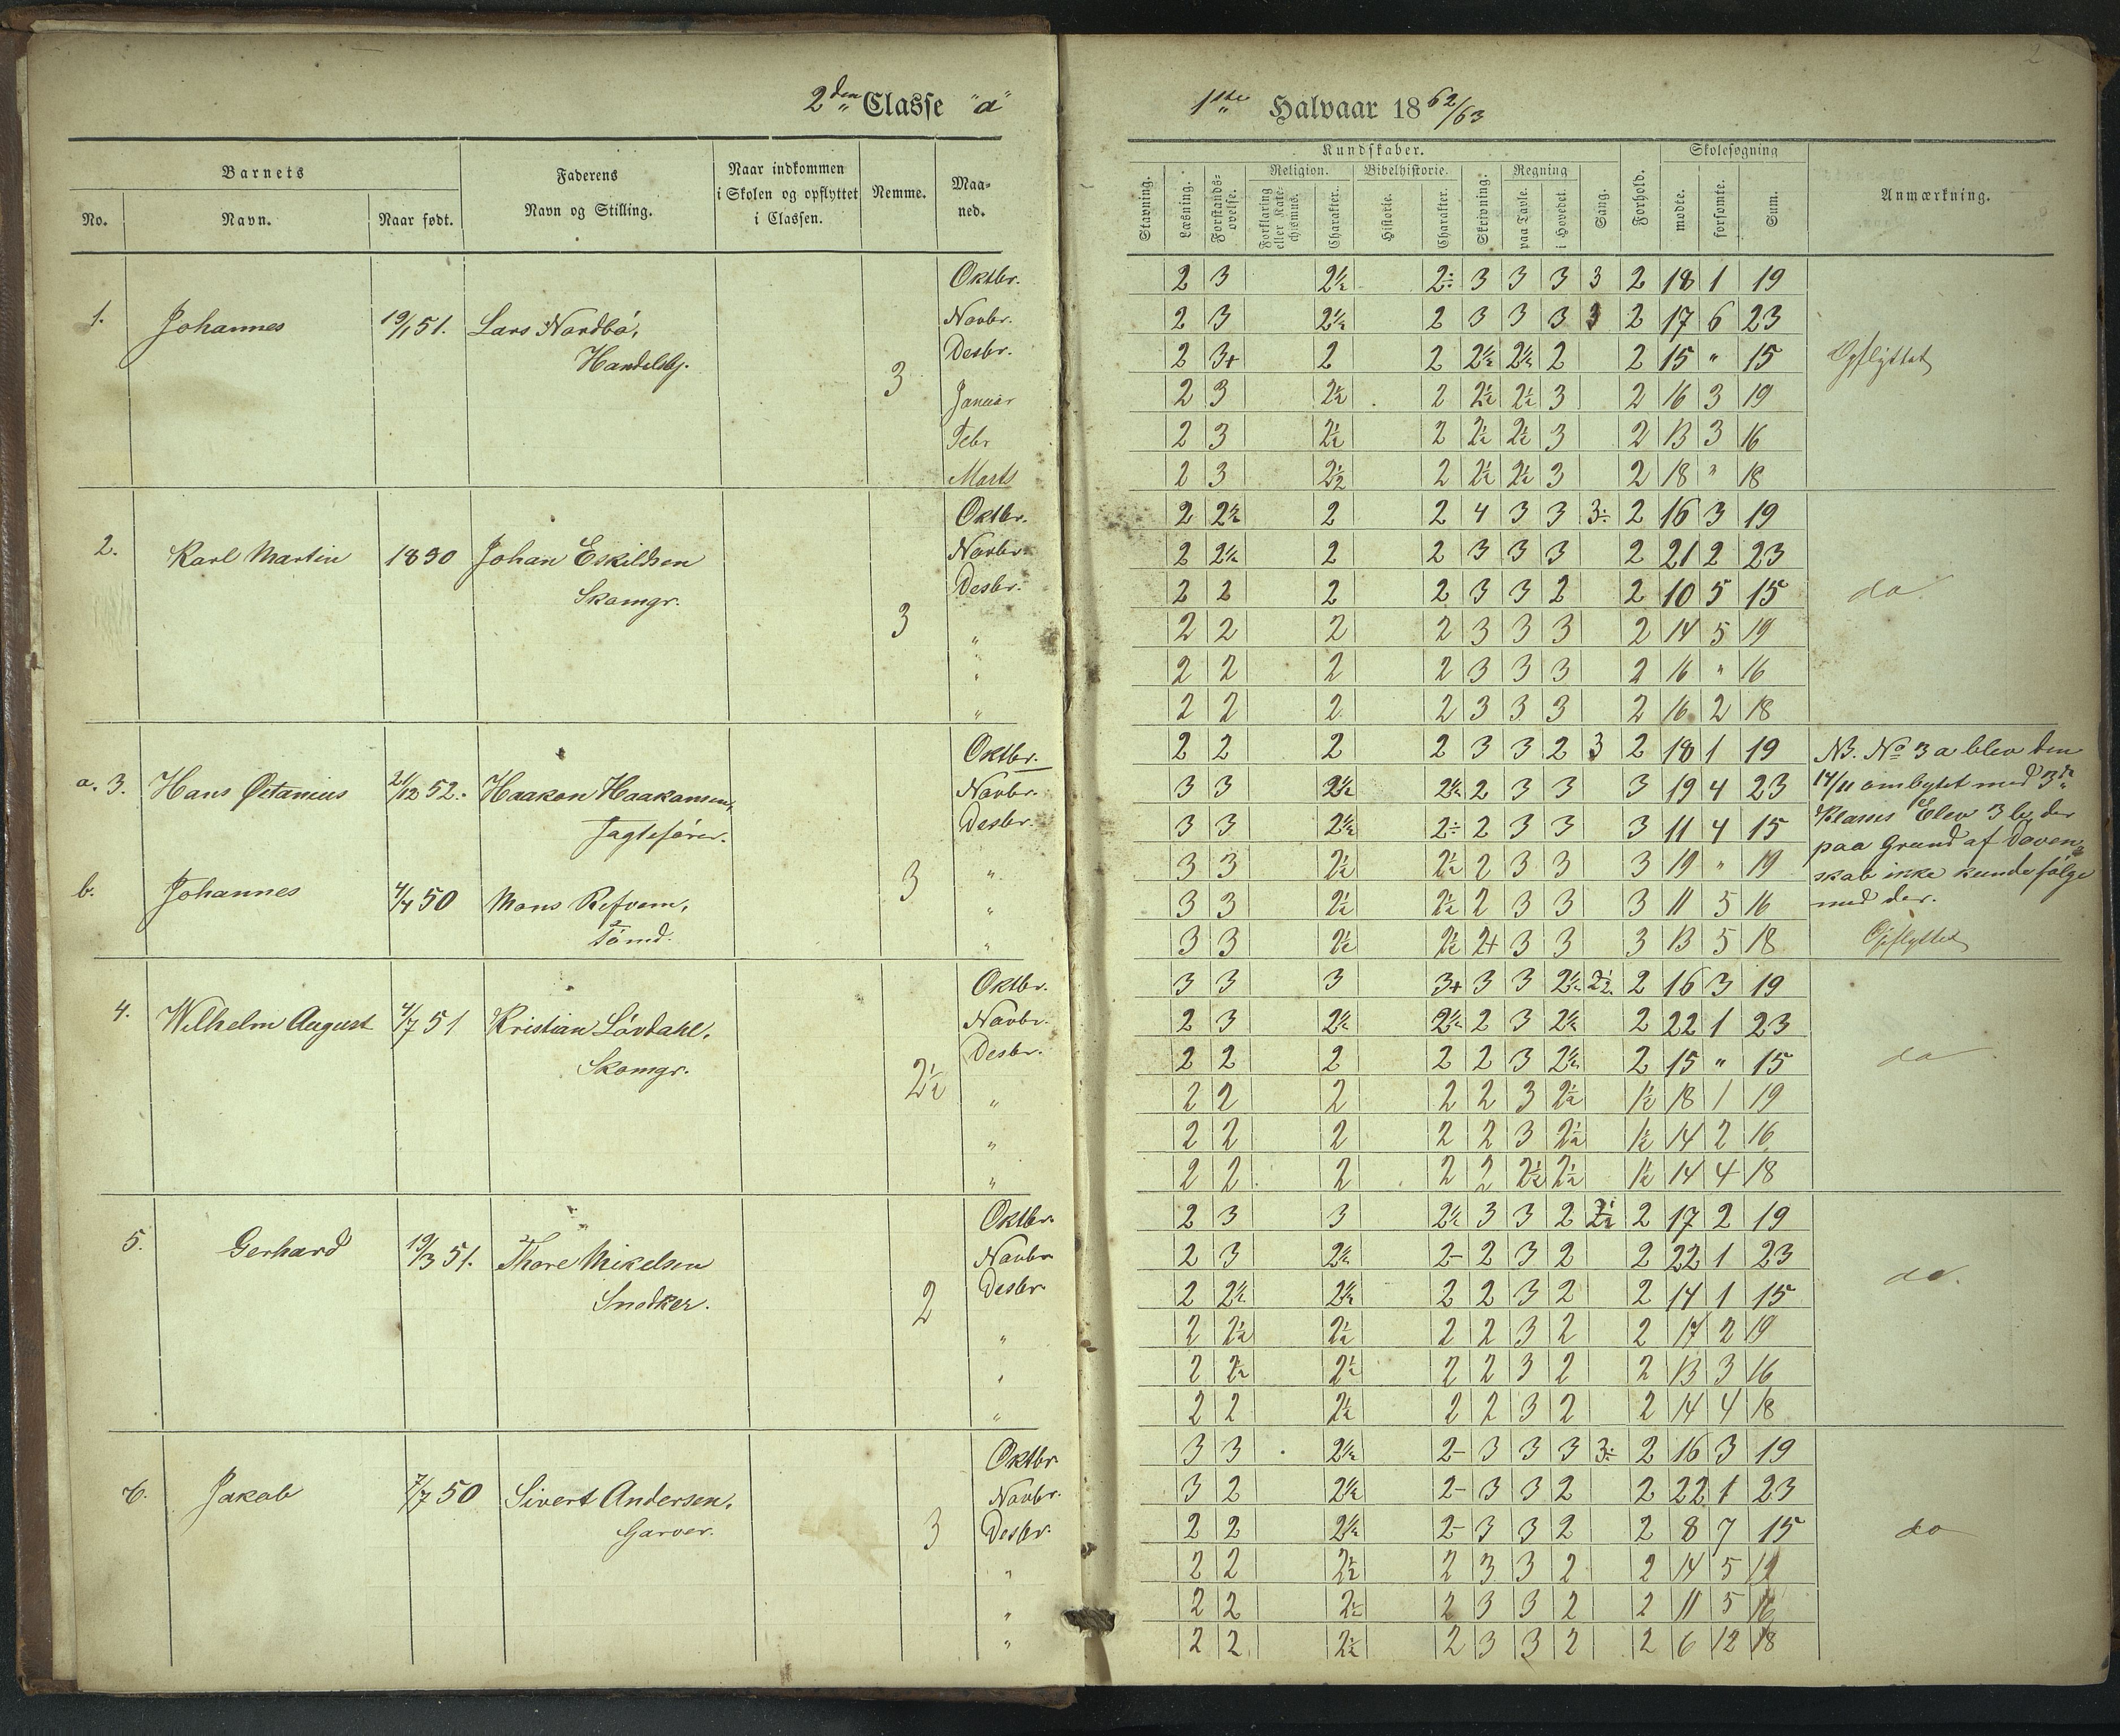 2den Classe "a"
1ste Halvaar 1862/63
Barnets
Faderens
Navn og Stilling.
Naar indkommen
i Skolen og opflyttet
i Classen.
Nemme.
Maa-
ned.
No.
Navn.
Naar født.
Kundskaber.
Skolesøgning
Religion.
Bibelhistorie.
Regning
Stavning.
Læsning.
Forstands-
øvelse.
Forklaring
eller Kate-
chismus.
Charakter.
Historie.
Charakter.
Skrivning.
paa Tavle.
i Hovedet.
Sang.
Forhold.
mødte.
forsømte.
Sum.
Anmærkning.
Oktbr. 2 3 2½ 2÷ 3 3 3 3 2 18 1 19
1. Johannes 19/1 51. Lars Nordbö, Novbr. 2 3 2½ 2 3 3 3 3 2 17 6 23
Handelsbj. 3 Desbr. 2 3+ 2 2 2½ 2½ 2 2 15 " 15 Opflyttet
Januar 2 3 2½ 2 2½ 2½ 3 2 16 3 19
Febr 2 3 2½ 2 2½ 2½ 3 2 13 3 16
Marts 2 3 2½ 2 2½ 2½ 3 2 18 " 18
Oktbr. 2 2½ 2 2 4 3 3 3÷ 2 16 3 19
2. Karl Martin Johan Eskildsen Novbr. 2 2½ 2 2 3 3 3 2 21 2 23
Skomgr. 3 Desbr. 2 2 2 2 3 3 2 2 10 5 15 do.
" 2 2 2 2 3 3 3 2 14 5 19
" 2 2 2 2 3 3 3 2 16 " 16
" 2 2 2 2 3 3 3 2 16 2 18
Oktbr. 2 2 2 2 3 3 2 3 2 18 1 19 NB. No 3 a blev den
a. 3. Hans Octanius 21/12 52. Haakon Haakonsen, Novbr. 3 3 2½ 2½ 2 3 3 3 19 4 23 14/11 ombyttet med 3die
Jagtefører. Desbr. 3 3 2½ 2÷ 2 3 3 3 11 4 15 Klasses Elev 3 b, der
3 " 3 3 2½ 2½ 2 3 3 3 19 " 19 paa Grund af Doven-
b. Johannes 4/4 50 Mons Refvem, " 3 3 2½ 2½ 2 3 3 3 11 5 16 skab ikke kunde følge
Tömd. " 3 3 2½ 2½ 2+ 3 3 3 13 5 18 med der.
Opflyttet
Oktbr. 3 3 3 3+ 3 3 2½ 2½ 2 16 3 19
4. Wilhelm August 4/7 51 Kristian Lövdahl, Novbr. 2 3 2½ 2½ 2 3 2½ 2 22 1 23
Skomgr. 2½ Desbr. 2 2 2 2 2 3 2½ 2 15 " 15 do
" 2 2 2 2 2 3 2½ 1½ 18 1 19
" 2 2 2 2 2 3 2½ 1½ 14 2 16
" 2 2 2 2 2 2½ 2½ 1½ 14 4 18
Oktbr. 2 3 3 2½ 3 3 2 2½ 2 17 2 19
5. Gerhard 19/3 51. Thore Mikelsen Novbr 2 3 2½ 2- 2 3 2 2 22 1 23
Snedker. 2 Desbr. 2 2½ 2½ 2 2 3 2 2 14 1 15 do.
" 2 2½ 2½ 2 2 3 2 2 17 2 19
" 2 2½ 2½ 2 2 3 2 2 13 3 16
" 2 2 2½ 2 2 3 2 2 14 4 18
Oktbr 3 3 2½ 2- 3 3 3 3÷ 2 16 3 19
6. Jakob 7/7 50 Sivert Andersen, Novbr. 3 2 2½ 2- 3 3 2 2 22 1 23
Garver. 3 Desbr. 2 2 2½ 2- 3 3 2 2 8 7 15 do
" 2 2 2½ 2 3 3 2 2 14 5 19
" 2 2 2½ 2 3 3 2 2 11 5 16
" 2 2 2½ 2 3 3 2 2 6 12 18